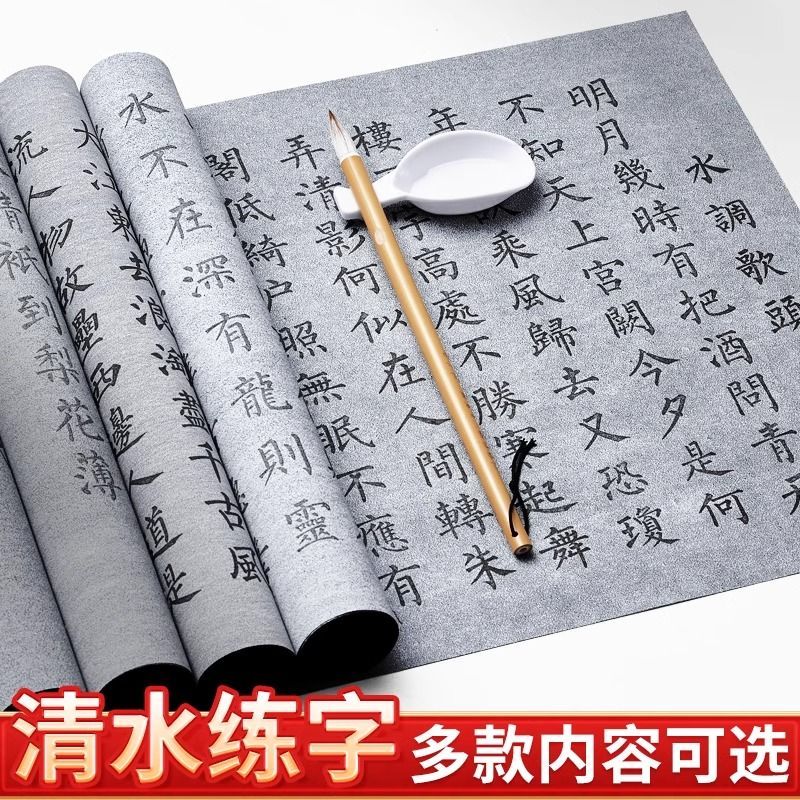 水調歌頭
明月幾時有把酒問青天
不知天上宮闕今夕是何
年乘風歸去又恐瓊
樓宇高處不勝寒起舞
弄清影何似在人間轉朱
閣低綺户照無眠不應有
水不在深有龍則靈
去浪淘盡千古風
流人物故壘西邊人道是
清衹到梨花薄
清水练字
多款内容可选